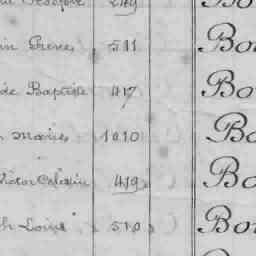 249 Bo
in Pierre 511 Bo
de Baptiste 417 Bo
Marie 1010 Bo
Victor Célestin 419 Bo
h Louis 510 Bo